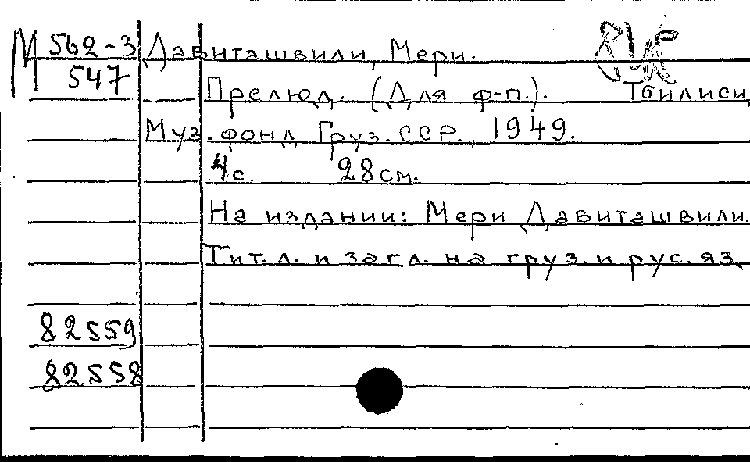 М 562-3 Давиташвили, Мери.
547 Прелюд. (Для ф-п.). Тбилиси,
Муз. фонд Груз.ССР. 1949.
4с. 28см.
На издании: Мери Давиташвили.
Тит.л. и загл. на груз. и рус. яз.
82559
82558